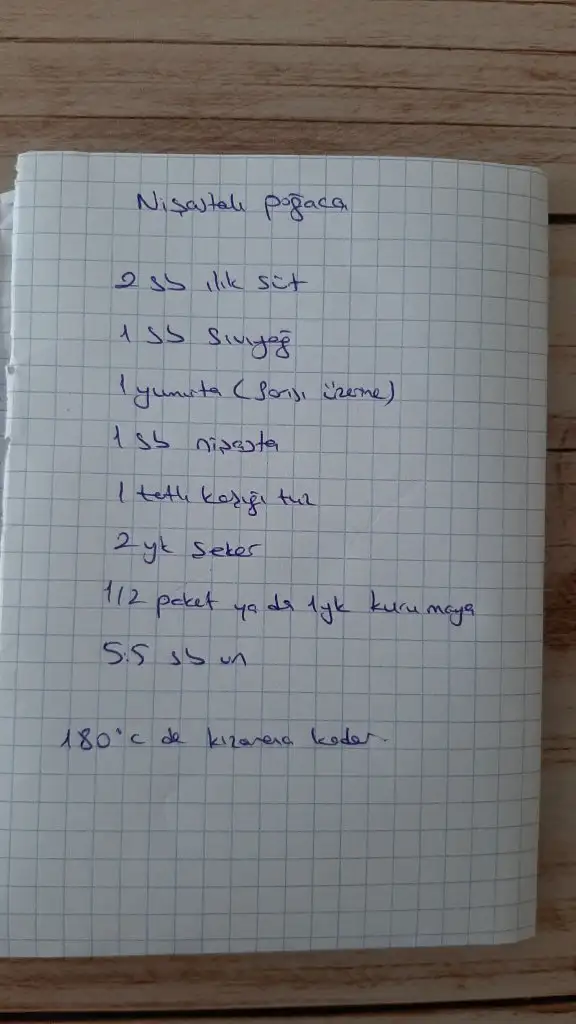 Nişastalı poğaca
2 sb ılık süt
1 sb sıvıyağ
1 yumurta (sarısı üzerine)
1 sb nişasta
1 tatlı kaşığı tuz
2 yk şeker
1/2 paket ya da 1yk kuru maya
5.5 sb un
180°c de kızarana kadar.